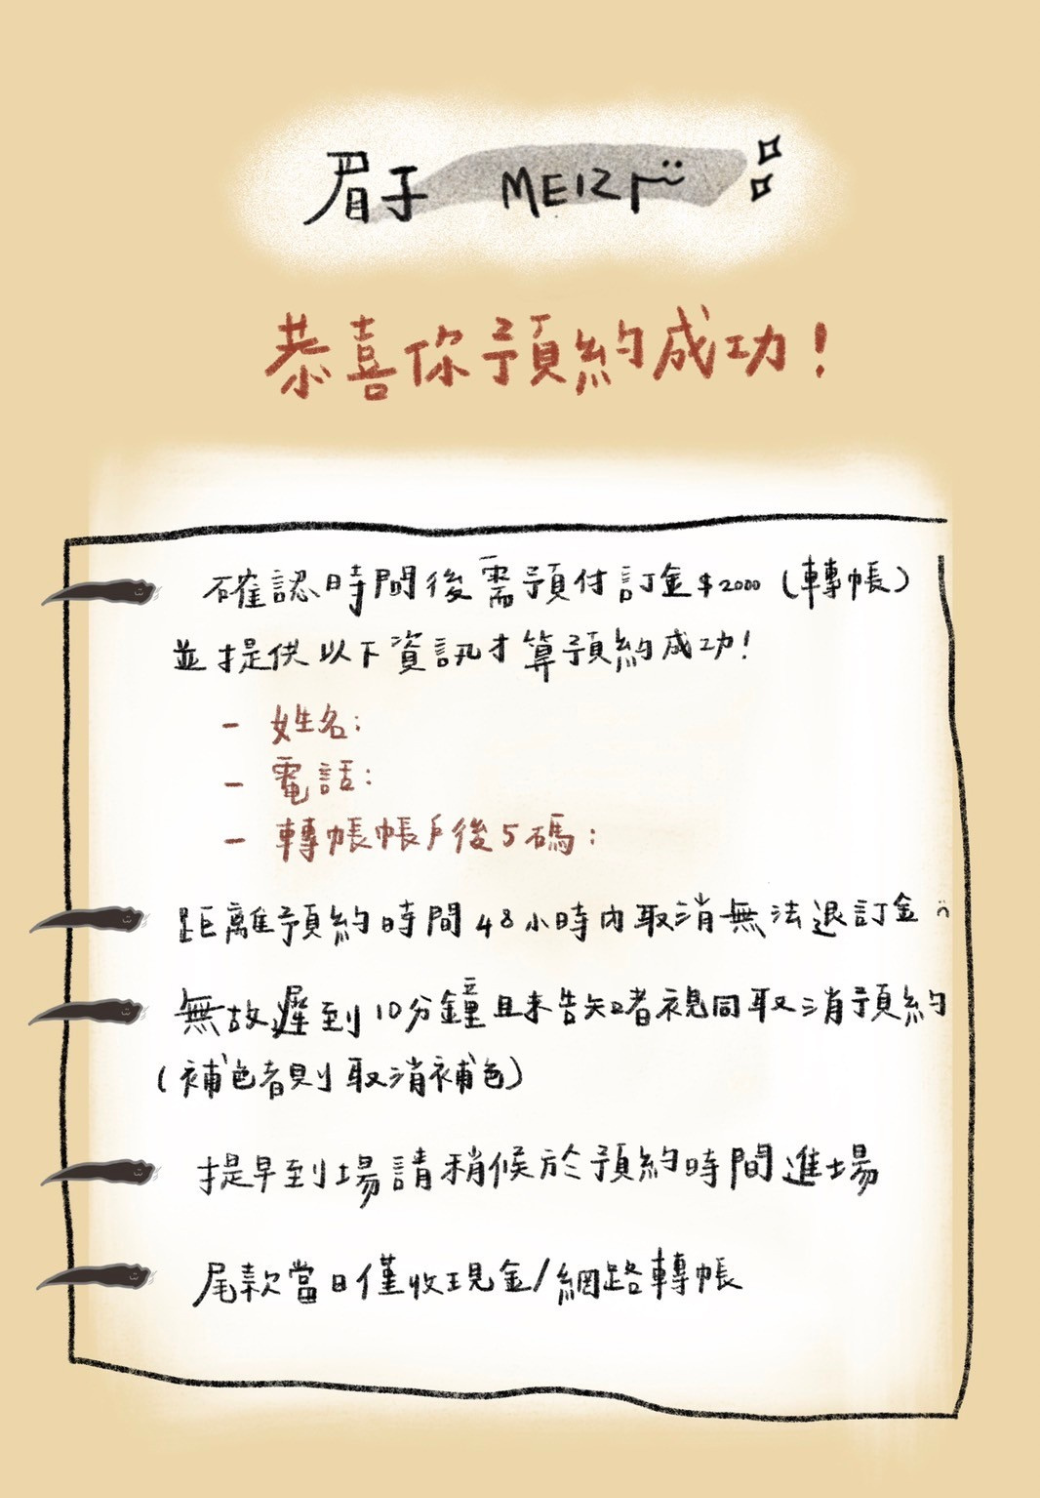 眉子 MEIZI
恭喜你預約成功！
確認時間後需預付訂金$2000（轉帳）
並提供以下資訊才算預約成功！
- 姓名：
- 電話：
- 轉帳帳戶後5碼：
距離預約時間48小時內取消無法退訂金
無故遲到10分鐘且未告知者視同取消預約
（補色者則取消補色）
提早到場請稍候於預約時間進場
尾款當日僅收現金/網路轉帳